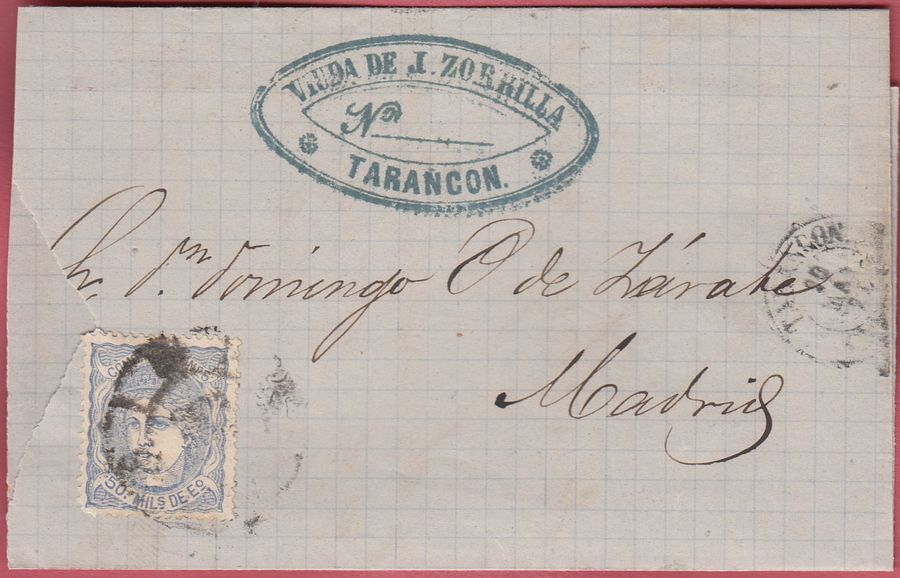 VIUDA DE J. ZORRILLA
Nº
TARANCON.
Sr. Dn. Domingo O de Zárate
Madrid
TARANCON
COMUNICACIONES
50 MILS DE Eº